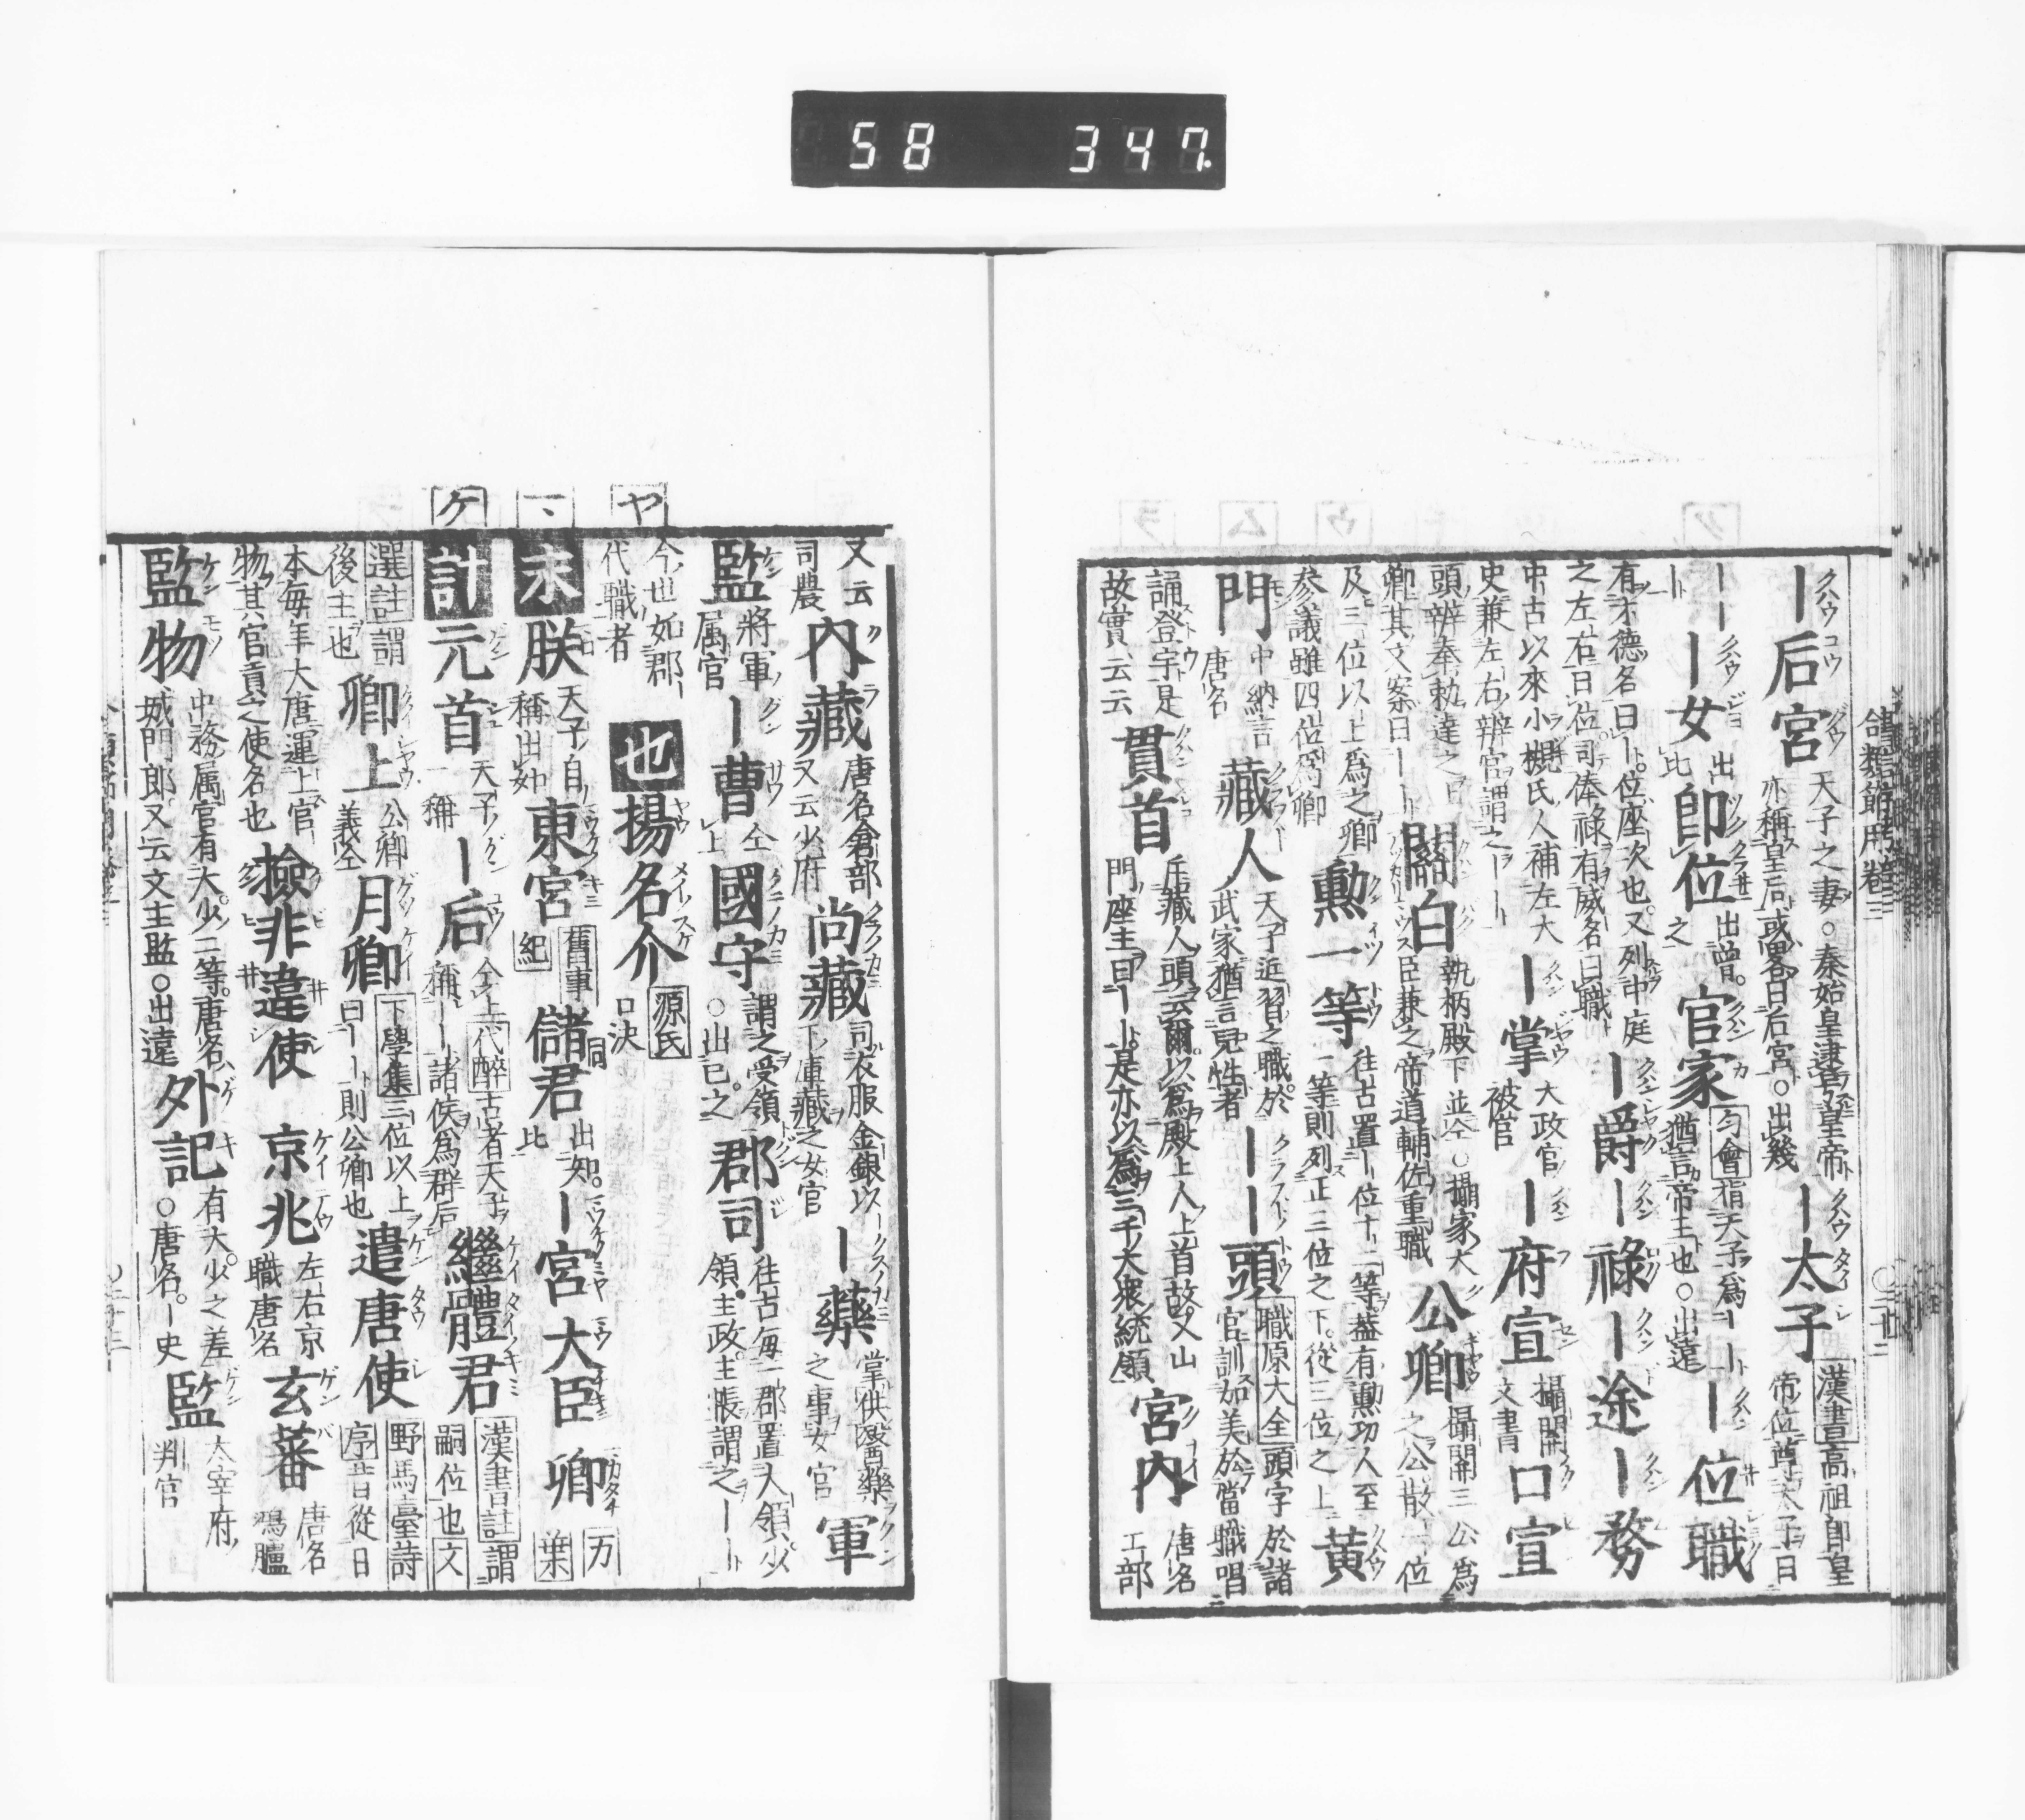 58 347
合類節用卷三
｜后宮 天子之妻。秦始皇建皇帝
亦稱皇后或畧曰后宮。出幾
｜太子 漢書高祖即皇
帝位尊太子曰
｜｜｜女 出
比
即位 出曾。
之
官家 匀會指天子爲｜｜
猶言帝王也。出遠
｜位職
有才德名曰｜。位座次也。又列中庭
之左右曰位司俸祿有威名曰職
｜爵｜祿｜途｜務
中古以來小槻氏人補左大
史兼左右辨官謂之｜｜
｜掌 大政官
被官
｜府宣 攝關
文書
口宣
頭辨奉勅達之曰
卿其文案曰｜｜
關白 執柄殿下並仝。攝家大
臣兼之帝道輔佐重職
公卿 攝關三公爲
之公散一位
及三位以上爲之卿
參議雖四位爲卿
勳一等 往古置｜位十二等蓋有勲功人至
一等則列正三位之下。從三位之上
黃
門 中納言
唐名
藏人 天子近習之職於
武家猶言兒性者
｜｜頭 職原大全頭字於諸
官訓如美於當職唱
誦登宇是
故實云云
貫首 斥藏人頭云爾以爲殿上人上首故又山
門座主曰｜｜。是亦以爲三千大衆統領
宮內 唐名
工部
又云
司農
內藏 唐名倉部
又云少府
尚藏 司衣服金銀以
下庫藏之女官
｜藥 掌供醫藥
之事女官
軍
監 將軍
属官
｜曹 仝
上
國守 謂之受領
。出已。之
郡司 往古每一郡置大領。少
領。主政。主帳謂之｜｜
ヤ
今世如郡｜
代職者
也
揚名介 源氏
口決
マ
末
朕 天子自
稱出如
東宮 舊事
紀
儲君 出如。
比
｜宮大臣卿 万
葉
ケ
計
元首 天子
稱
｜后 今上
稱｜｜
代醉古者天子
諸侯爲群后
繼體君 漢書註謂
嗣位也文
選註謂
後主也
卿上 公卿
義仝
月卿 下學集三位以上
曰｜｜則公卿也
遣唐使 野馬臺詩
序昔從日
本每年大唐運上官
物其官貢之使名也
撿非違使
京兆 左右京
職唐名
玄蕃 唐名
鴻臚
監物 中務属官有大。少二等。唐名
城門郎又云文主監。出遠
外記 有大。少之差
。唐名。｜史
監 太宰府
判官